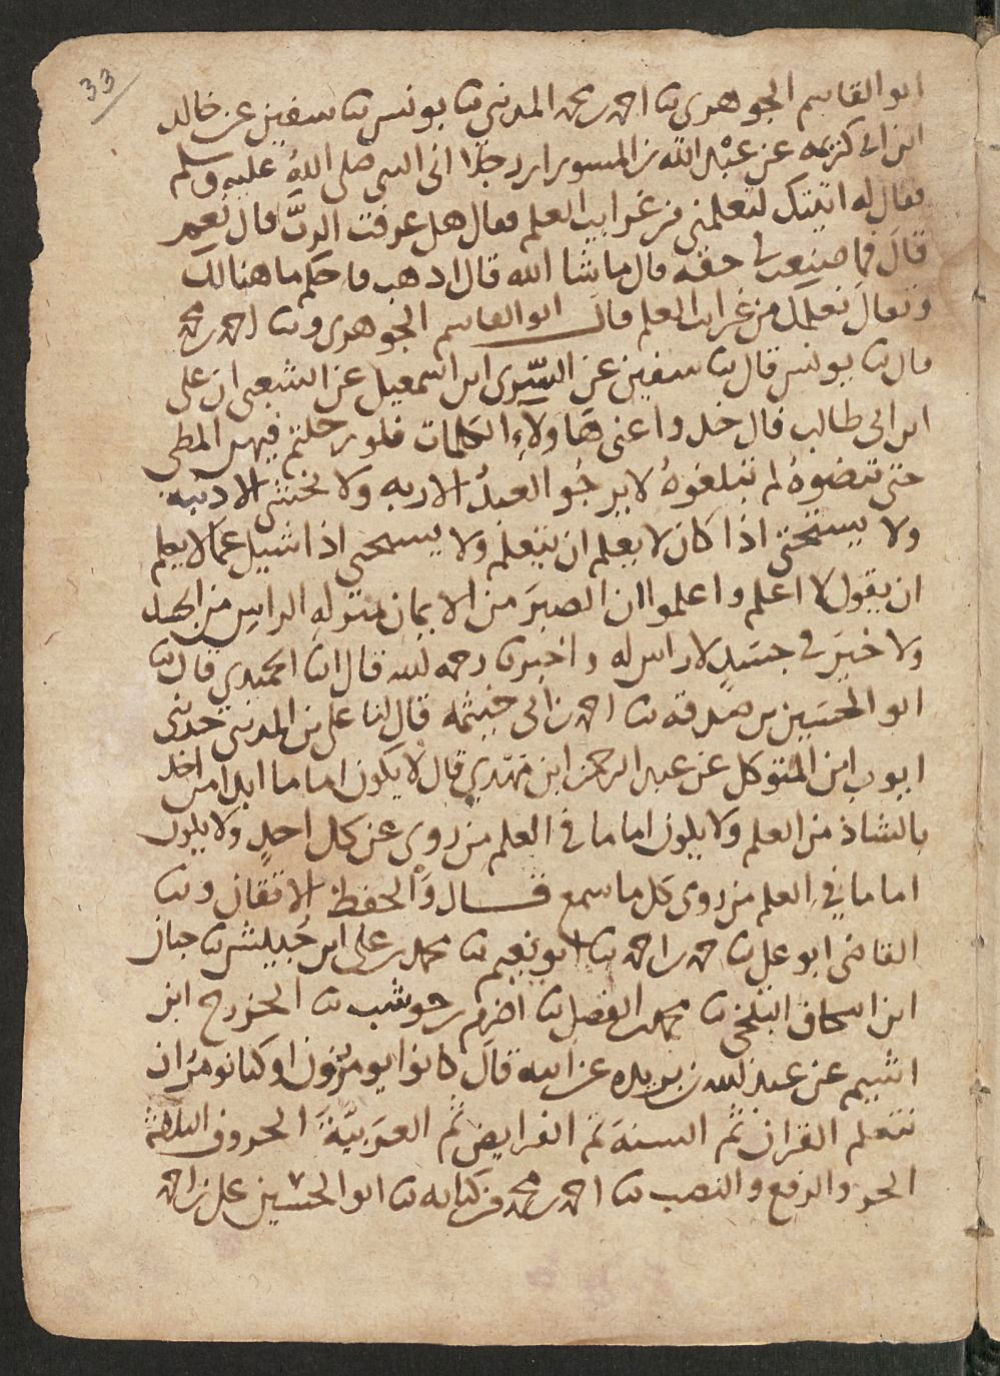 33
ابو القاسم الجوهرى ثنا احمد بن محمد المدنى ثنا يونس ثنا سفين عن خالد
ابن ابى كريمه عن عبد الله بن المسور ان رجلا اتى النبى صلى الله عليه وسلم
فقال له اتيتك لتعلمنى من غرايب العلم فقال هل عرفت الربَّ قال نعم
قال فما صنعت فى حقه قال ما شا الله قال اذهب فاحكم ما هنالك
وتعال نعلمك من غرايب العلم قال ابو القاسم الجوهرى وثنا احمد بن محمد
قال ثنا يونس قال ثنا سفين عن السّرى ابن اسمعيل عن الشعبى ان على
ابن ابى طالب قال خذوا عنى هاولاءِ الكلمات فلو رحلتم فيهن المطى
حتى تنضوهُ لم تبلغوهُ لا يرجُو العبدُ الا ربه ولا يخشى الا ذنبه
ولا يستحى اذا كان لا يعلم ان يتعلم ولا يستحى اذا سيل عما لا يعلم
ان يقول لا اعلم واعلموا ان الصبرَ من الايمان منزله الراس من الجسد
ولا خيرَ فى جسدٍ لا راس له واخبرنا رحمه لله قال انا الحميدي قال ثنا
ابو الحسين بن صدقه ثنا احمد بن ابى خيثمه قال لنا على بن المدينى حدثنى
ايوب ابن المتوكل عن عبد الرحمن ابن مهدي قال لا يكون اماما ابدا من اخذ
بالشاذ من العلم ولا يكون اماما فى العلم من روى عن كل احدٍ ولا يكون
اماما فى العلم من روى كل ما سمع قال وَالحفظ الاتقان وثنا
القاضى ابو على ثنا حمد بن احمد ثنا ابو نعيم ثنا محمد بن على ابن حُبيش ثنا
ابن اسحاق ثنا محمد بن الفضل ثنا اضرم بن حوشب ثنا الخزرج ابن
اشيم عن عبد لله بن بريده عن ابيه قال كانوا يومرون او كنا نومر ان
نتعلم القران ثم السنه ثم الفرايض ثم العربيَّه الحروف الثلاثة
الجر والرفع والنصب ثنا احمد بن محمد من كتابه ثنا ابو الحسين على بن احمد